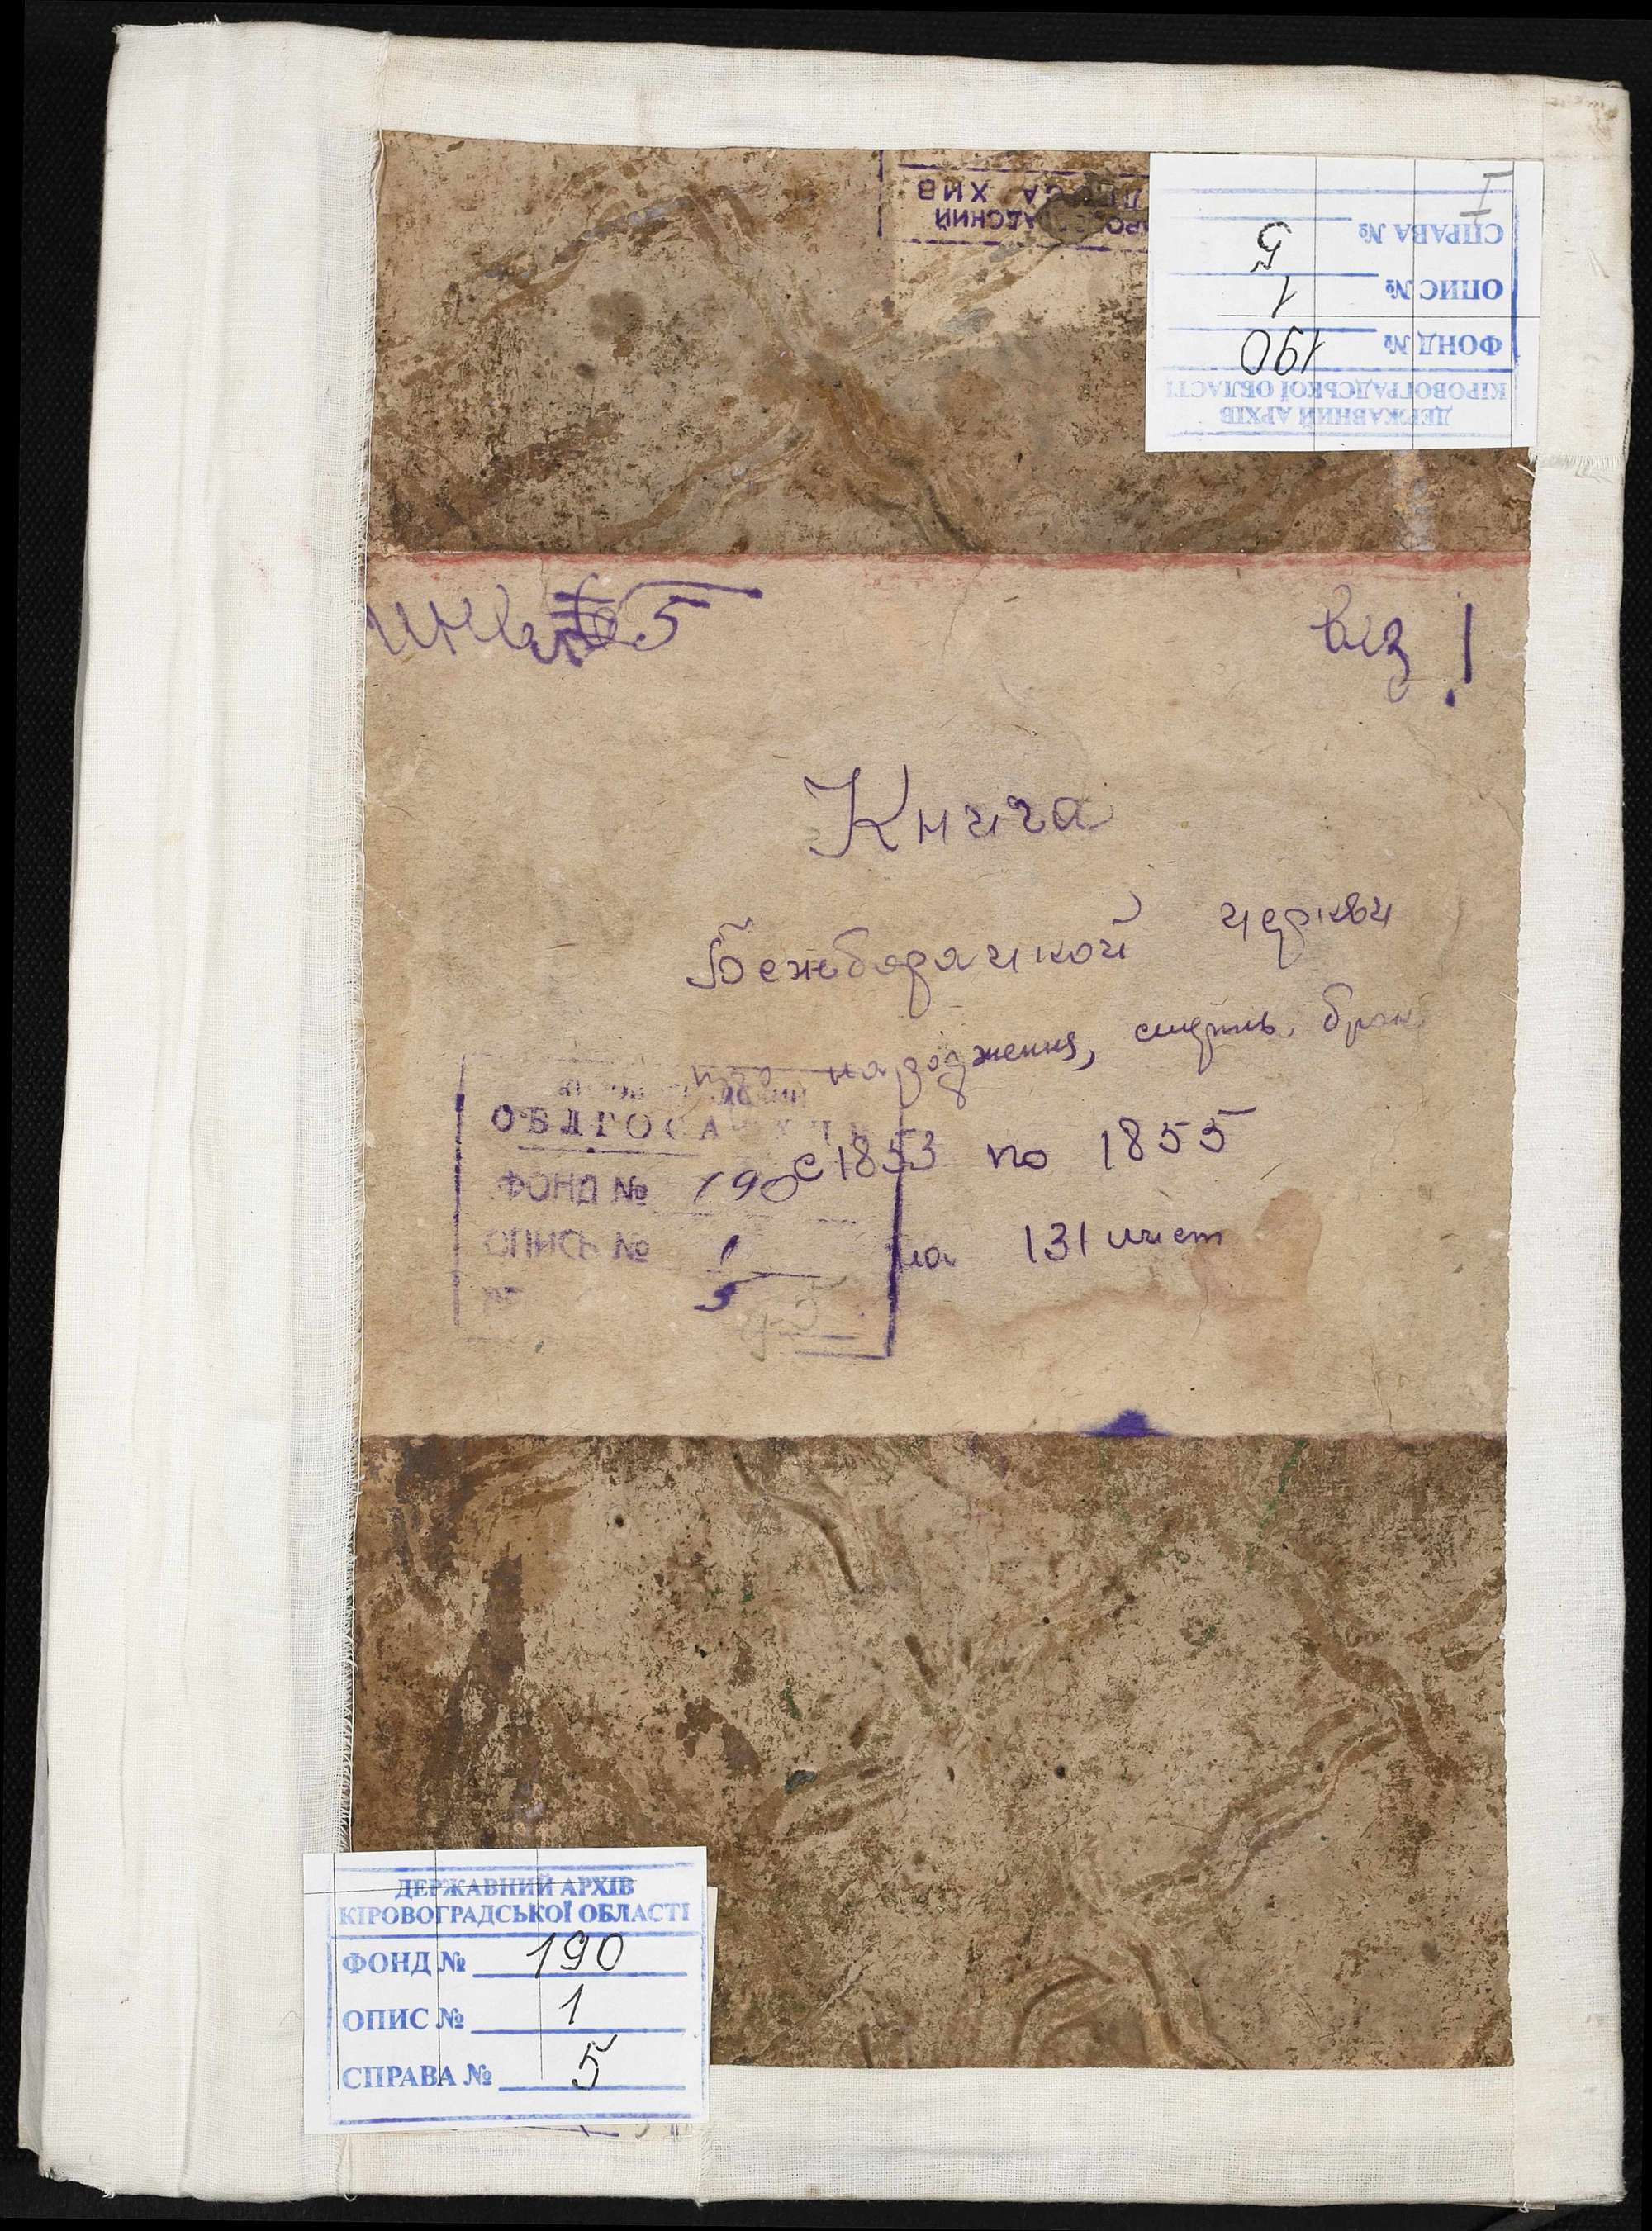 СПРАВА № 5
ОПИС № 1
ФОНД № 190
КІРОВОГРАДСЬКОЇ ОБЛАСТІ
ДЕРЖАВНИЙ АРХІВ
5
Книга
церкви
народження, смерть, брак
ОБЛГОСА
с 1853 по 1855
ФОНД № 190
ОПИСЬ № 1
на 131 лист
5
ДЕРЖАВНИЙ АРХІВ
КІРОВОГРАДСЬКОЇ ОБЛАСТІ
ФОНД № 190
ОПИС № 1
СПРАВА № 5